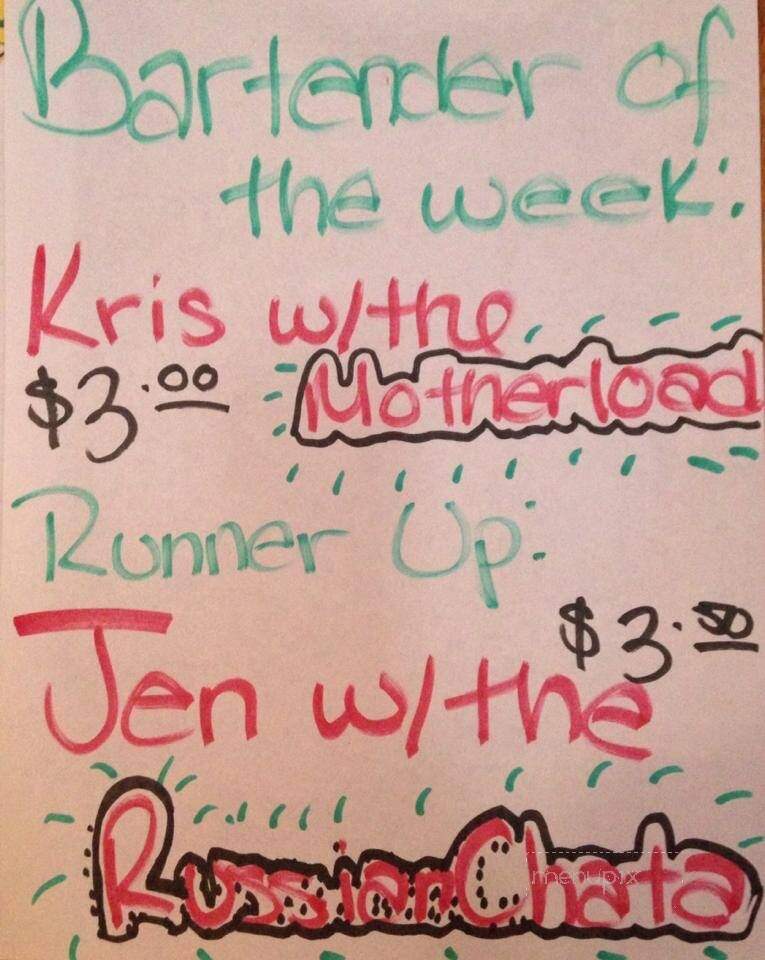 Bartender of
the week:
Kris w/the
$3.00 Motherload
Runner Up:
$3.50
Jen w/the
RussianChata
menupix